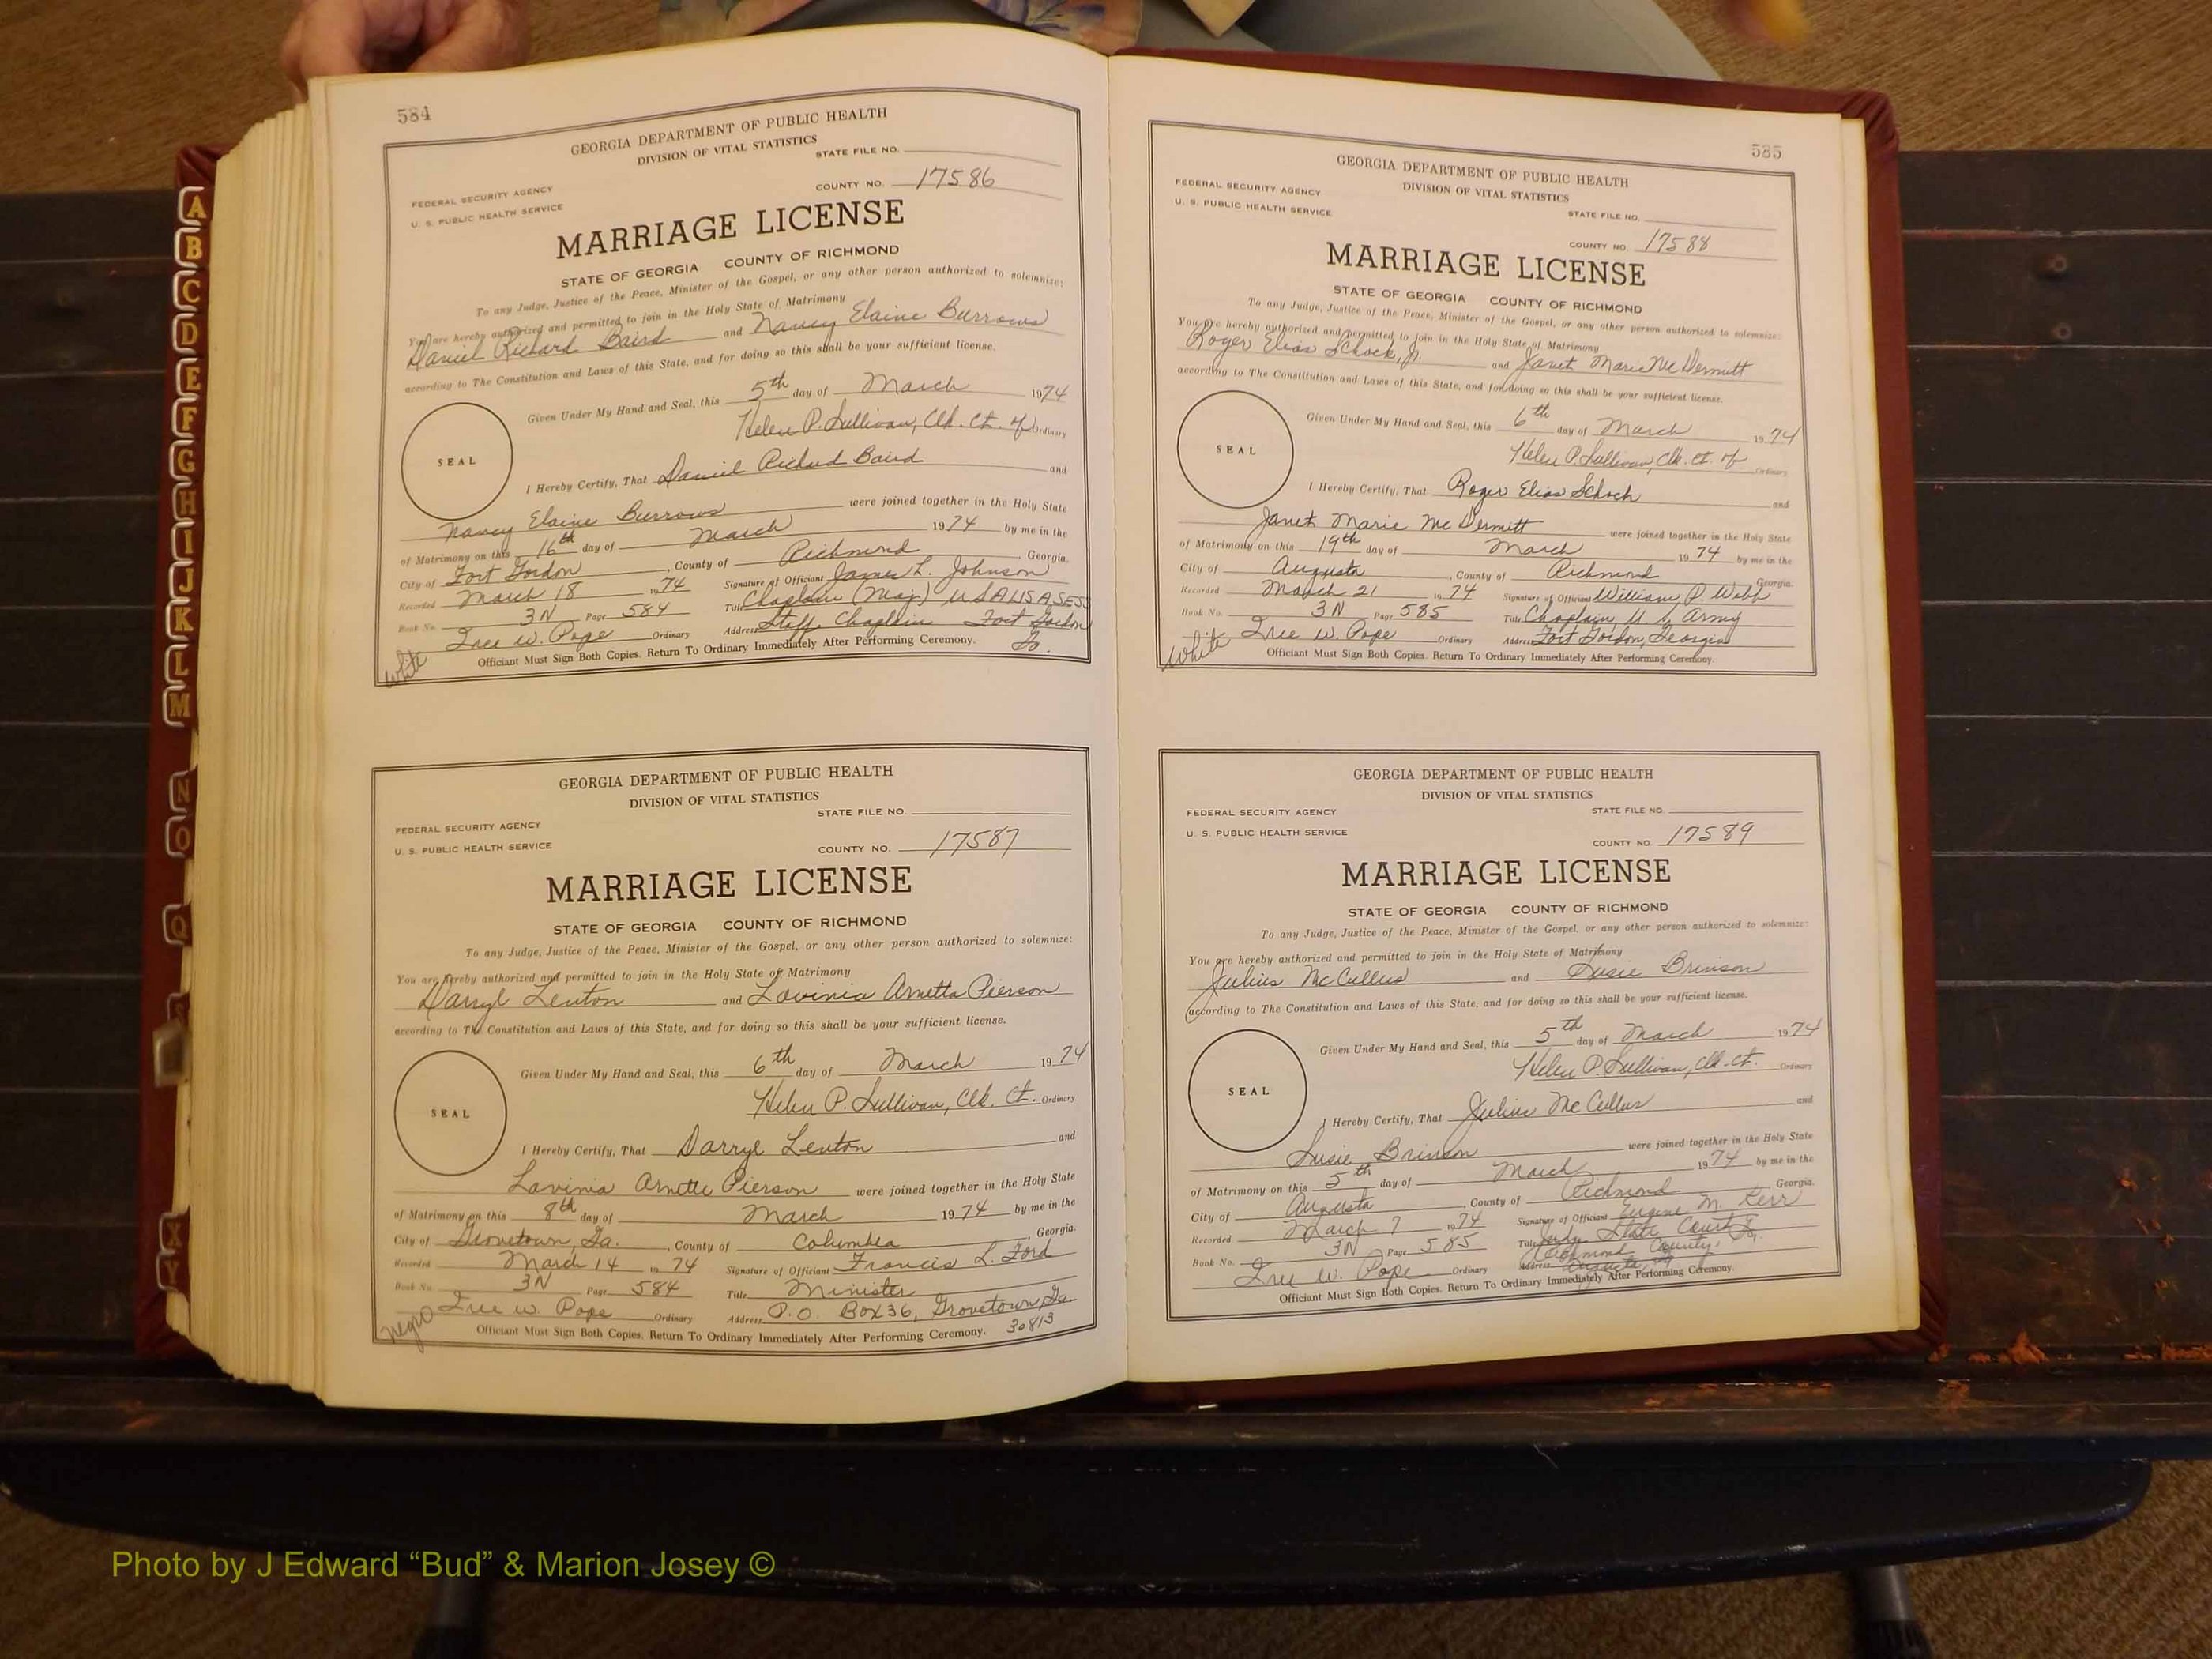 584
GEORGIA DEPARTMENT OF PUBLIC HEALTH
DIVISION OF VITAL STATISTICS
STATE FILE NO.
FEDERAL SECURITY AGENCY
COUNTY NO. 17586
U. S. PUBLIC HEALTH SERVICE
MARRIAGE LICENSE
STATE OF GEORGIA COUNTY OF RICHMOND
To any Judge, Justice of the Peace, Minister of the Gospel, or any other person authorized to solemnize:
You are hereby authorized and permitted to join in the Holy State of Matrimony
Daniel Richard Baird and Nancy Elaine Burrows
according to The Constitution and Laws of this State, and for doing so this shall be your sufficient license.
Given Under My Hand and Seal, this 5th day of March 1974
Helen P. Sullivan, Clk. Ct. of Ordinary
SEAL
I Hereby Certify, That Daniel Richard Baird and
Nancy Elaine Burrows were joined together in the Holy State
of Matrimony on this 16th day of March 1974 by me in the
City of Fort Gordon, County of Richmond, Georgia.
Recorded March 18 1974 Signature of Officiant James L. Johnson
Book No. 3N Page 584 Title Chaplain (Maj) USALISASESS
Iree W. Pope Ordinary Address Staff Chaplain Fort Gordon
Ga.
Officiant Must Sign Both Copies. Return To Ordinary Immediately After Performing Ceremony.
White
GEORGIA DEPARTMENT OF PUBLIC HEALTH
DIVISION OF VITAL STATISTICS
STATE FILE NO.
FEDERAL SECURITY AGENCY
U. S. PUBLIC HEALTH SERVICE
COUNTY NO. 17587
MARRIAGE LICENSE
STATE OF GEORGIA COUNTY OF RICHMOND
To any Judge, Justice of the Peace, Minister of the Gospel, or any other person authorized to solemnize:
You are hereby authorized and permitted to join in the Holy State of Matrimony
Darryl Lenton and Lavinia Arnetta Pierson
according to The Constitution and Laws of this State, and for doing so this shall be your sufficient license.
Given Under My Hand and Seal, this 6th day of March 1974
Helen P. Sullivan, Clk. Ct. Ordinary
SEAL
I Hereby Certify, That Darryl Lenton and
Lavinia Arnette Pierson were joined together in the Holy State
of Matrimony on this 8th day of March 1974 by me in the
City of Grovetown, Ga., County of Columbia, Georgia.
Recorded March 14 1974 Signature of Officiant Francis L. Ford
Book No. 3N Page 584 Title Minister
Iree W. Pope Ordinary Address P.O. Box 36, Grovetown, Ga.
30813
Officiant Must Sign Both Copies. Return To Ordinary Immediately After Performing Ceremony.
Negro
585
GEORGIA DEPARTMENT OF PUBLIC HEALTH
DIVISION OF VITAL STATISTICS
FEDERAL SECURITY AGENCY
U. S. PUBLIC HEALTH SERVICE
STATE FILE NO.
COUNTY NO. 17588
MARRIAGE LICENSE
STATE OF GEORGIA COUNTY OF RICHMOND
To any Judge, Justice of the Peace, Minister of the Gospel, or any other person authorized to solemnize:
You are hereby authorized and permitted to join in the Holy State of Matrimony
Roger Elias Schock, Jr. and Janet Marie McDermitt
according to The Constitution and Laws of this State, and for doing so this shall be your sufficient license.
Given Under My Hand and Seal, this 6th day of March 1974
Helen P. Sullivan, Clk. Ct. of Ordinary
SEAL
I Hereby Certify, That Roger Elias Schoch and
Janet Marie McDermitt were joined together in the Holy State
of Matrimony on this 19th day of March 1974 by me in the
City of Augusta, County of Richmond Georgia.
Recorded March 21 1974 Signature of Officiant William P. Webb
Book No. 3N Page 585 Title Chaplain, U.S. Army
Iree W. Pope Ordinary Address Fort Gordon, Georgia
Officiant Must Sign Both Copies. Return To Ordinary Immediately After Performing Ceremony.
White
GEORGIA DEPARTMENT OF PUBLIC HEALTH
DIVISION OF VITAL STATISTICS
FEDERAL SECURITY AGENCY
STATE FILE NO.
U. S. PUBLIC HEALTH SERVICE
COUNTY NO. 17589
MARRIAGE LICENSE
STATE OF GEORGIA COUNTY OF RICHMOND
To any Judge, Justice of the Peace, Minister of the Gospel, or any other person authorized to solemnize:
You are hereby authorized and permitted to join in the Holy State of Matrimony
Julius McCullus and Susie Brinson
according to The Constitution and Laws of this State, and for doing so this shall be your sufficient license.
Given Under My Hand and Seal, this 5th day of March 1974
Helen P. Sullivan, Clk. Ct. Ordinary
SEAL
I Hereby Certify, That Julius McCullus and
Susie Brinson were joined together in the Holy State
of Matrimony on this 5th day of March 1974 by me in the
City of Augusta, County of Richmond Georgia.
Recorded March 7 1974 Signature of Officiant Eugene M. Kerr
Book No. 3N Page 585 Title Judge State Court
Richmond County,
Iree W. Pope Ordinary Address Augusta,
Officiant Must Sign Both Copies. Return To Ordinary Immediately After Performing Ceremony.
A
B
C
D
E
F
G
H
I
J
K
L
M
N
O
Q
S
X
Y
Photo by J Edward “Bud” & Marion Josey ©